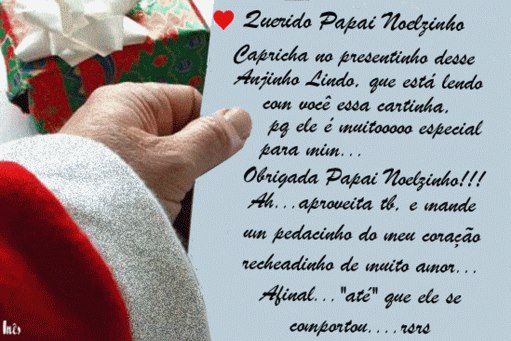 Querido Papai Noelzinho
Capricha no presentinho desse
Anjinho Lindo, que está lendo
com você essa cartinha,
pq ele é muitooooo especial
para mim...
Obrigada Papai Noelzinho!!!
Ah...aproveita tb, e mande
um pedacinho do meu coração
recheadinho de muito amor...
Afinal..."até" que ele se
comportou....rsrs
Inês